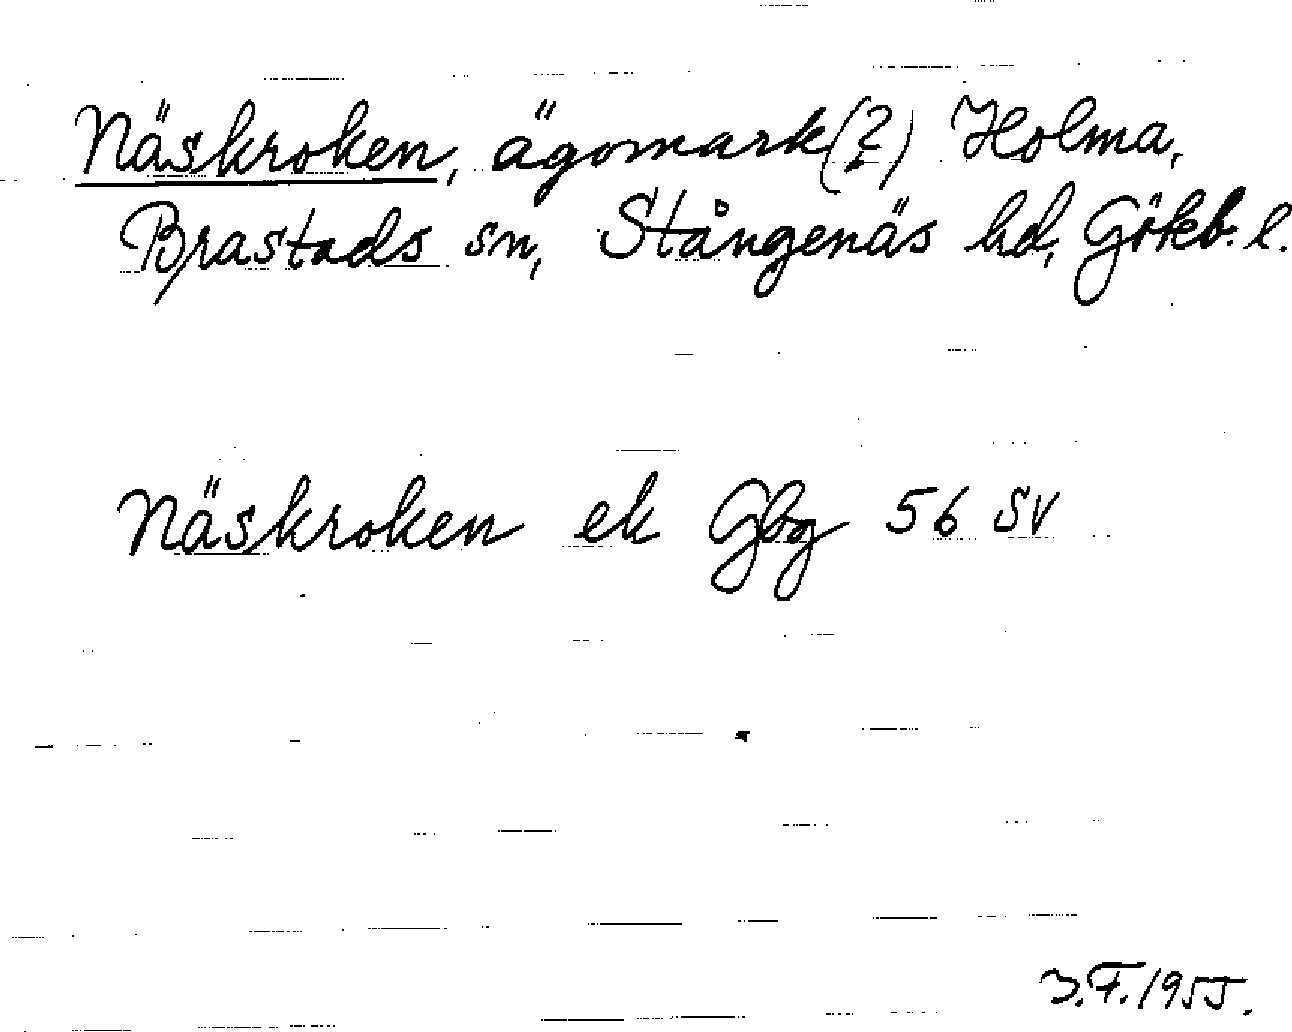 Näskroken, ägomark(?) Holma,
Brastads sn, Stångenäs hd, Gökb. l.
Näskroken ek Gbg 56 SV
J.F. 1955.